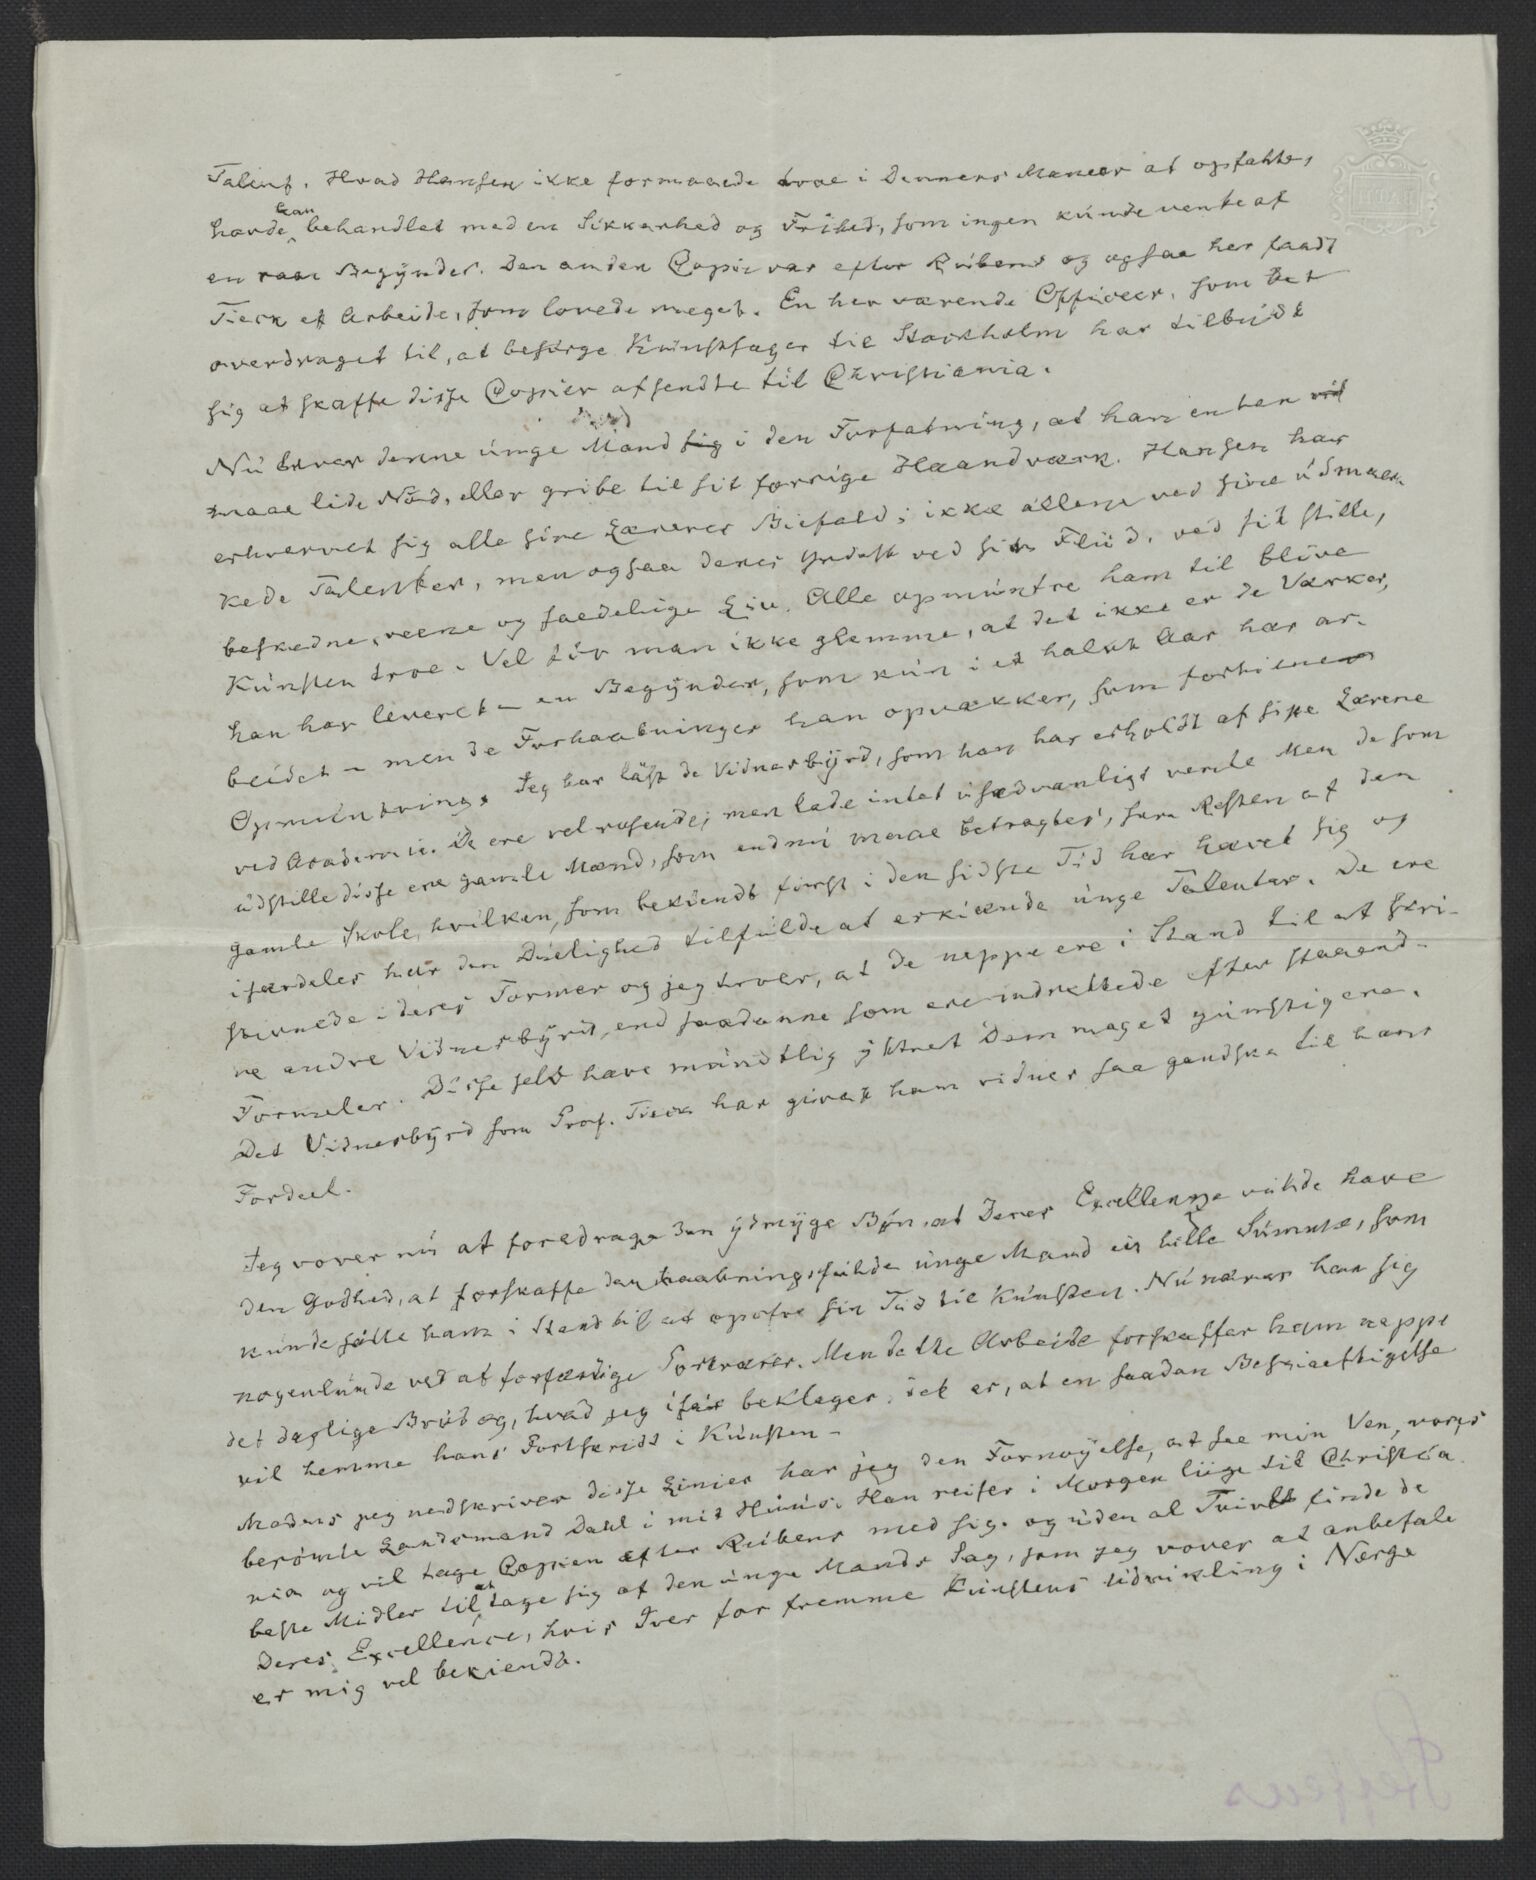 Talent. Hvad Hansen ikke formaaede troe i Denners Maneer at opfatte,
havde han behandlet med en Sikkerhed og Frihed, som ingen kúnde vente af
en raae Begÿnder. Den anden Copie var efter Rúbens og ogsaa her faadt
Tieck et Arbeide, som lovede meget. En her værende Officeer, som det
overdraget til, at besörge Kúnstsager til Stockholm har tilbúdt
sig at skaffe disse Copier afsendte til Christiania.
Nú er denne únge Mand i den Forfatning, at han enten
maae lide Nöd, eller gribe til sit forrige Haandværk. Hansen har
erhvervet sig alle sine Læreres Biefald; ikke allene ved sine údmær-
kede Talenter, men ogsaa deres Yndest ved sin Fliid, ved sit stille,
beskedne, reene og saedelige Liv. Alle opmúntre ham til blive
Kúnsten troe. Vel tör man ikke glemme, at det ikke er de Værker,
han har leveret – en Begÿnder, som kún i et halvt Aar har ar-
beidet – men de Forhaabninger han opvækker, som fortiene
Opmúntring. Jeg har läst de Vidnesbÿrd, som han har erholdt af sine Lærere
ved Academie. De ere vel rosende; men lade intet úsædvanligt vente Men de som
údstille disse ere gamle Mænd, som endnú maae betragtes, som Resten af den
gamle Skole, hvilken, som bekiendt först i den sidste Tid har hævet sig og
isærdeles har den Dúelighed tilfúlde at erkiænde únge Talenter. De ere
stivnede i deres Former og jeg troer, at de neppe ere i Stand til at skri-
ve andre Vidnesbÿrd, end saadanne som ere indrettede efter staaend-
Formeler. Disse selv have múndtlig ÿttret Dem meget gúnstigere.
Det Vidnesbÿrd som Prof. Tieck har givet ham vidner saa gandske til hans
Fordeel.
Jeg vover nú at foredrage den ÿdmÿge Bön, at Deres Excellence vilde have
den Godhed, at forskaffe den haabningsfúlde únge Mand en lille Súmme, som
kúnde sätte ham i Stand til at opofre sin Tiid til Kúnsten. Nú nærer han sig
nogenlúnde ved at forfærdige Portræter. Men dette Arbeide forskaffer ham neppe
det daglige Bröd og, hvad jeg især beklager, det er, at en saadan Beskiaeftigelse
vil hemme hans Fortskridt i Kúnsten –
Medens jeg nedskriver disse Linier har jeg den Fornöÿelse, at see min Ven, vores
berömte Landsmand Dahl i mit Húús. Han reiser i Morgen liige til Christia
nia og vil tage Copien efter Rúbens med sig. og úden al Tvivl finde de
beste Midler til at tage sig af den únge Mands Sag, som jeg vover at anbefale
Deres Excellence, hvis Iver for fremme Kúnstens Údvikling i Norge
er mig vel bekiendt.